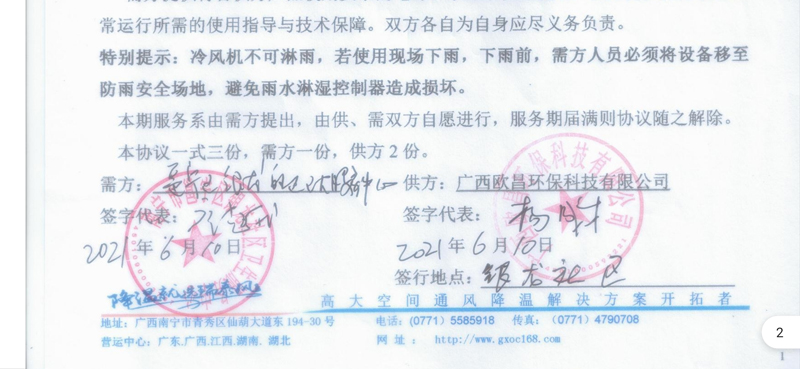 常运行所需的使用指导与技术保障。双方各自为自身应尽义务负责。
特别提示：冷风机不可淋雨，若使用现场下雨，下雨前，需方人员必须将设备移至
防雨安全场地，避免雨水淋湿控制器造成损坏。
本期服务系由需方提出，由供、需双方自愿进行，服务期届满则协议随之解除。
本协议一式三份，需方一份，供方2份。
需方： 供方：广西欧昌环保科技有限公司
签字代表： 签字代表：
2021年6月10日 2021年6月10日
签行地点：银龙社区
降温就选瑞泰风
高大空间通风降温解决方案开拓者
地址：广西南宁市青秀区仙葫大道东194-30号 电话：（0771）5585918 传真：（0771）4790708
营运中心：广东.广西.江西.湖南. 湖北 网 址： http://www.gxoc168.com
2
1